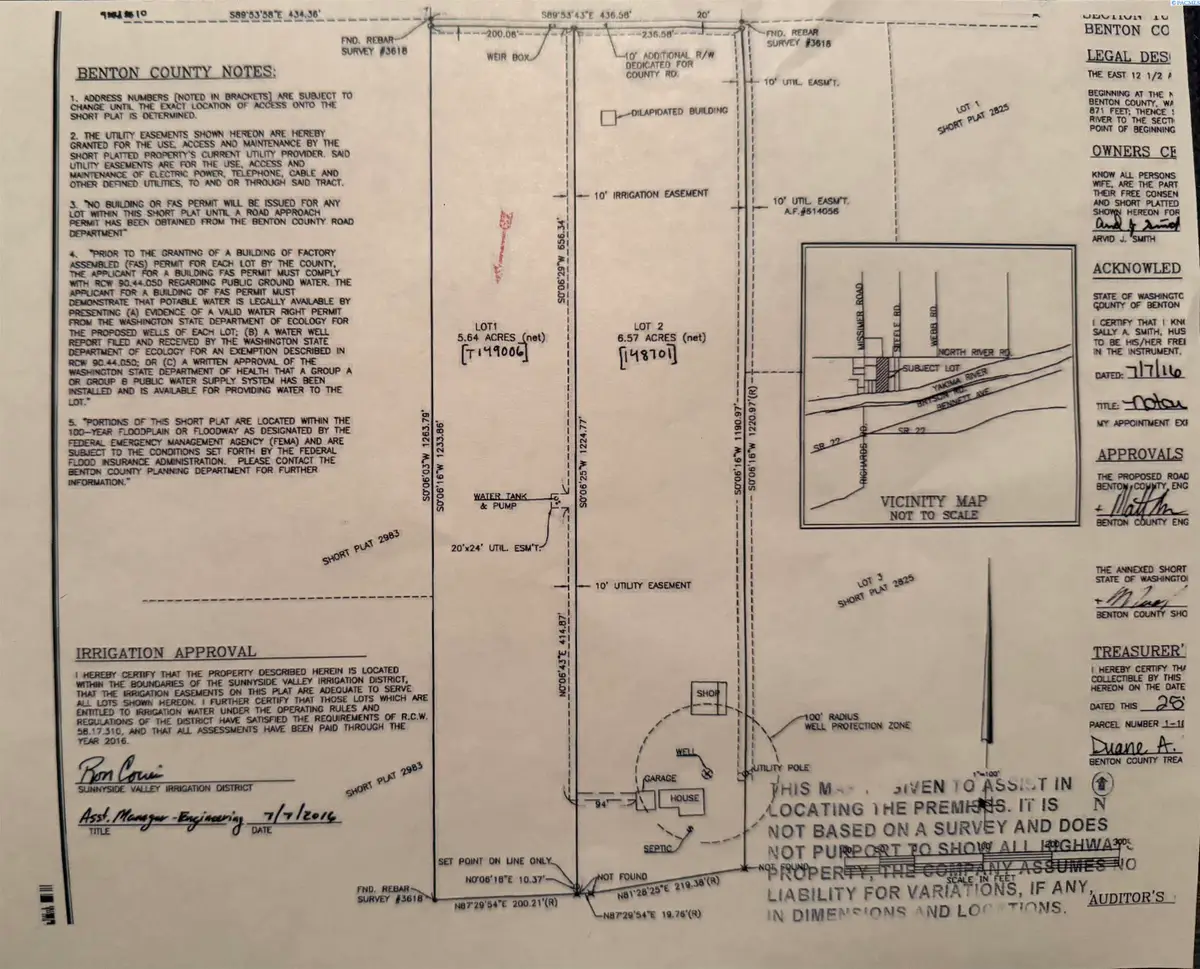 S89°53'58"E 434.36'
S89°53'43"E 436.58'
20'
200.08'
236.58'
FND. REBAR
SURVEY #3618
WEIR BOX
10' ADDITIONAL R/W
DEDICATED FOR
COUNTY RD.
FND. REBAR
SURVEY #3618
10' UTIL. EASM'T.
DILAPIDATED BUILDING
LOT 1
SHORT PLAT 2825
10' IRRIGATION EASEMENT
10' UTIL. EASM'T.
A.F.#614056
BENTON COUNTY NOTES:
1. ADDRESS NUMBERS [NOTED IN BRACKETS] ARE SUBJECT TO
CHANGE UNTIL THE EXACT LOCATION OF ACCESS ONTO THE
SHORT PLAT IS DETERMINED.
2. THE UTILITY EASEMENTS SHOWN HEREON ARE HEREBY
GRANTED FOR THE USE, ACCESS AND MAINTENANCE BY THE
SHORT PLATTED PROPERTY'S CURRENT UTILITY PROVIDER. SAID
UTILITY EASEMENTS ARE FOR THE USE, ACCESS AND
MAINTENANCE OF ELECTRIC POWER, TELEPHONE, CABLE AND
OTHER DEFINED UTILITIES, TO AND OR THROUGH SAID TRACT.
3. "NO BUILDING OR FAS PERMIT WILL BE ISSUED FOR ANY
LOT WITHIN THIS SHORT PLAT UNTIL A ROAD APPROACH
PERMIT HAS BEEN OBTAINED FROM THE BENTON COUNTY ROAD
DEPARTMENT"
4. "PRIOR TO THE GRANTING OF A BUILDING OF FACTORY
ASSEMBLED (FAS) PERMIT FOR EACH LOT BY THE COUNTY,
THE APPLICANT FOR A BUILDING FAS PERMIT MUST COMPLY
WITH RCW 90.44.050 REGARDING PUBLIC GROUND WATER. THE
APPLICANT FOR A BUILDING OF FAS PERMIT MUST
DEMONSTRATE THAT POTABLE WATER IS LEGALLY AVAILABLE BY
PRESENTING (A) EVIDENCE OF A VALID WATER RIGHT PERMIT
FROM THE WASHINGTON STATE DEPARTMENT OF ECOLOGY FOR
THE PROPOSED WELLS OF EACH LOT; (B) A WATER WELL
REPORT FILED AND RECEIVED BY THE WASHINGTON STATE
DEPARTMENT OF ECOLOGY FOR AN EXEMPTION DESCRIBED IN
RCW 90.44.050; OR (C) A WRITTEN APPROVAL OF THE
WASHINGTON STATE DEPARTMENT OF HEALTH THAT A GROUP A
OR GROUP B PUBLIC WATER SUPPLY SYSTEM HAS BEEN
INSTALLED AND IS AVAILABLE FOR PROVIDING WATER TO THE
LOT."
5. "PORTIONS OF THIS SHORT PLAT ARE LOCATED WITHIN THE
100-YEAR FLOODPLAIN OR FLOODWAY AS DESIGNATED BY THE
FEDERAL EMERGENCY MANAGEMENT AGENCY (FEMA) AND ARE
SUBJECT TO THE CONDITIONS SET FORTH BY THE FEDERAL
FLOOD INSURANCE ADMINISTRATION. PLEASE CONTACT THE
BENTON COUNTY PLANNING DEPARTMENT FOR FURTHER
INFORMATION."
S0°06'29"W 656.34'
LOT1
5.64 ACRES (net)
[T149006]
LOT 2
6.57 ACRES (net)
[148701]
S0°06'03"W 1263.79'
S0°06'16"W 1233.86'
S0°06'25"W 1224.77'
S0°06'16"W 1190.97'
S0°06'16"W 1220.97'(R)
WATER TANK
& PUMP
20'x24' UTIL. ESM'T.
SHORT PLAT 2983
10' UTILITY EASEMENT
N0°06'43"E 414.87'
LOT 3
SHORT PLAT 2825
MISSIMER ROAD
STEELE RD.
WEBB RD.
NORTH RIVER RD.
SUBJECT LOT
YAKIMA RIVER
BENNETT AVE.
SR 22
SR 22
RICHARDS RD.
VICINITY MAP
NOT TO SCALE
IRRIGATION APPROVAL
I HEREBY CERTIFY THAT THE PROPERTY DESCRIBED HEREIN IS LOCATED
WITHIN THE BOUNDARIES OF THE SUNNYSIDE VALLEY IRRIGATION DISTRICT,
THAT THE IRRIGATION EASEMENTS ON THIS PLAT ARE ADEQUATE TO SERVE
ALL LOTS SHOWN HEREON. I FURTHER CERTIFY THAT THOSE LOTS WHICH ARE
ENTITLED TO IRRIGATION WATER UNDER THE OPERATING RULES AND
REGULATIONS OF THE DISTRICT HAVE SATISFIED THE REQUIREMENTS OF R.C.W.
58.17.310, AND THAT ALL ASSESSMENTS HAVE BEEN PAID THROUGH THE
YEAR 2016.
SUNNYSIDE VALLEY IRRIGATION DISTRICT
Asst. Manager - Engineering 7/7/2016
TITLE DATE
SHORT PLAT 2983
SHOP
100' RADIUS
WELL PROTECTION ZONE
WELL
UTILITY POLE
GARAGE
HOUSE
94'
SEPTIC
SET POINT ON LINE ONLY
N0°06'16"E 10.37'
NOT FOUND
N81°28'25"E 219.38'(R)
NOT FOUND
FND. REBAR
SURVEY #3618
N87°29'54"E 200.21'(R)
N87°29'54"E 19.76'(R)
1"=100'
N
SCALE IN FEET
THIS MAP GIVEN TO ASSIST IN
LOCATING THE PREMISES. IT IS
NOT BASED ON A SURVEY AND DOES
NOT PURPORT TO SHOW ALL HIGHWAYS
PROPERTY, THE COMPANY ASSUMES NO
LIABILITY FOR VARIATIONS, IF ANY,
IN DIMENSIONS AND LOCATIONS.
BENTON CO
LEGAL DES
THE EAST 12 1/2 A
BEGINNING AT THE N
BENTON COUNTY, WA
871 FEET; THENCE
RIVER TO THE SECTI
POINT OF BEGINNING
OWNERS CE
KNOW ALL PERSONS
WIFE, ARE THE PART
THEIR FREE CONSEN
AND SHORT PLATTED
SHOWN HEREON FOR
ARVID J. SMITH
ACKNOWLED
STATE OF WASHINGTO
COUNTY OF BENTON
I CERTIFY THAT I KN
SALLY A. SMITH, HUS
TO BE HIS/HER FREE
IN THE INSTRUMENT.
DATED: 7/7/16
TITLE: Notary
MY APPOINTMENT EXI
APPROVALS
THE PROPOSED ROAD
BENTON COUNTY, ENG
BENTON COUNTY ENG
THE ANNEXED SHORT
STATE OF WASHINGTO
BENTON COUNTY SHO
TREASURER'
I HEREBY CERTIFY THA
COLLECTIBLE BY THIS
HEREON ON THE DATE
DATED THIS 28
PARCEL NUMBER 1-1
Duane A.
BENTON COUNTY TREA
AUDITOR'S